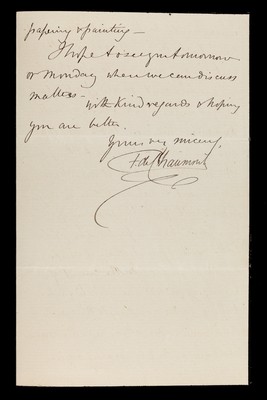 papering & painting —
I hope to see you tomorrow
or Monday when we can discuss
matters — with kind regards & hoping
you are better
Yours very sincerely
F de Chaumont